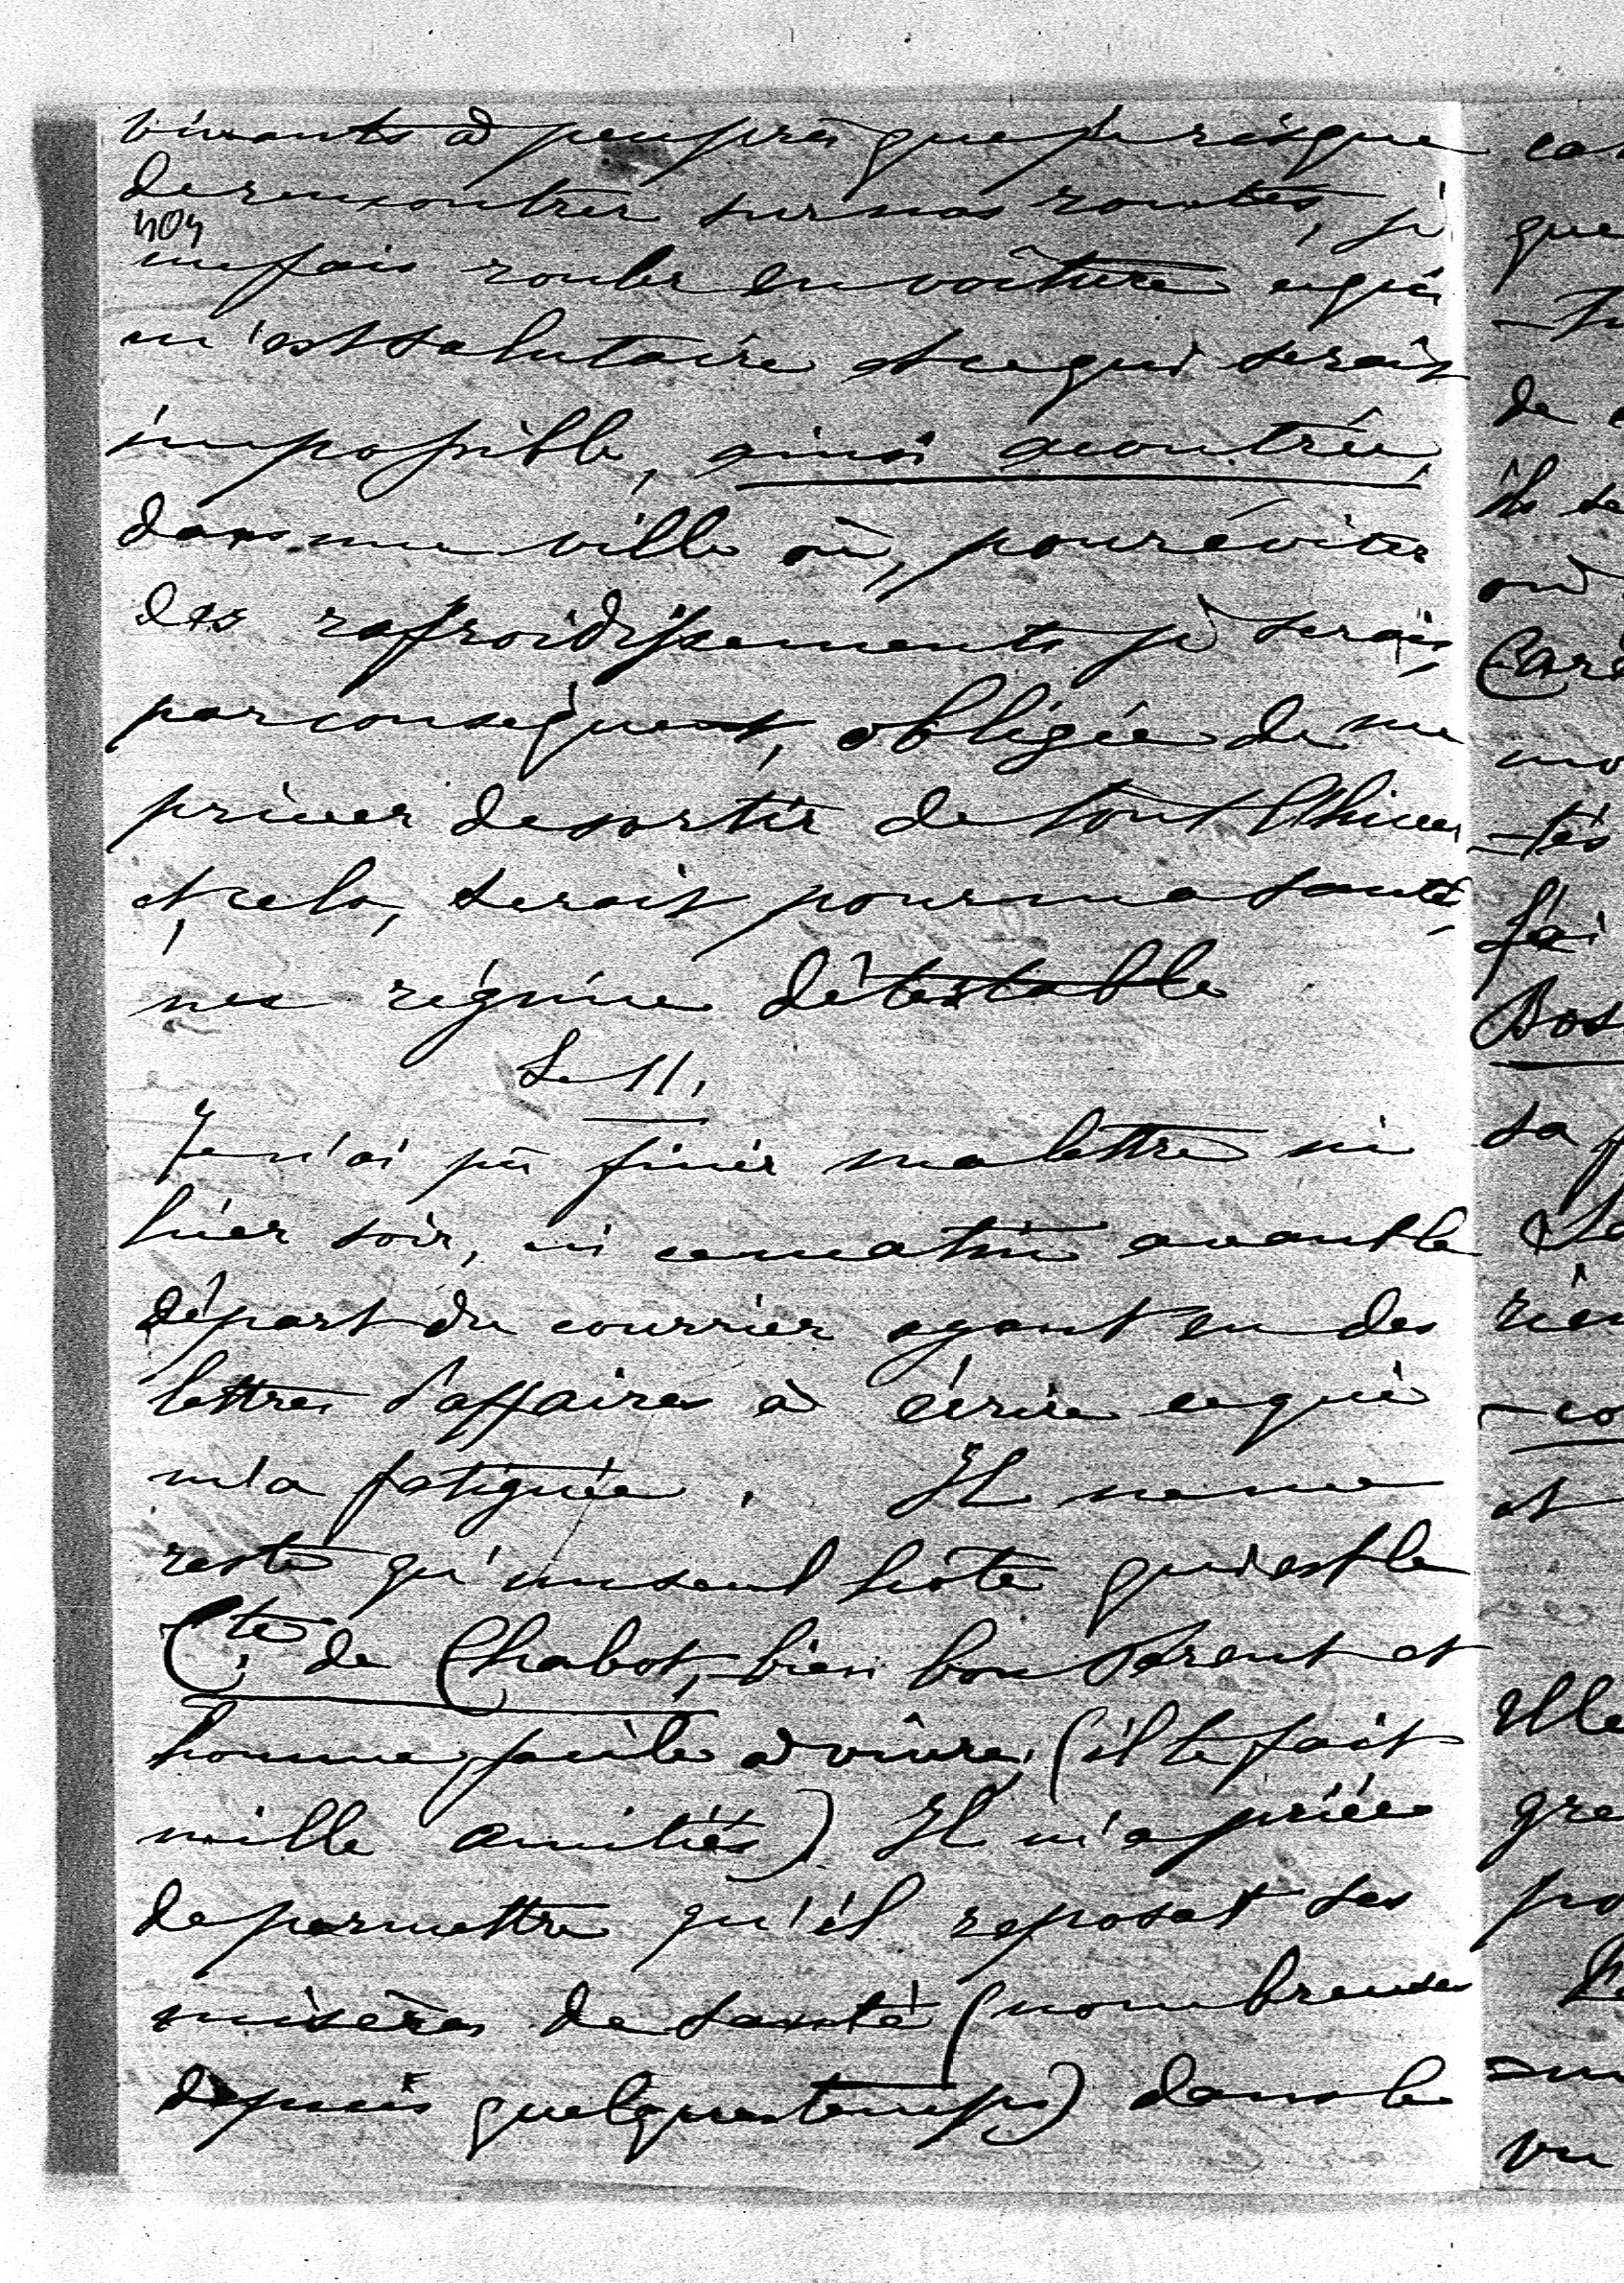 vivants à peu près que je risque
de rencontrer sur nos routes, je
404
me fais rouler en voiture ce qui
m'est salutaire et ce qui serait
impossible, ainsi acoutrée,
dans une ville où, pour éviter
des refroidissements je serais,
par conséquent, obligée de me
priver de sortir de tout l'hiver
et cela, serait pour ma santé
un régime détestable
Le 11.
Je n'ai pû finir ma lettre ni
hier soir, ni ce matin avant le
départ du courrier ayant eu des
lettres d'affaires à écrire ce qui
m'a fatiguée. Il ne me
reste qu'un seul hôte qui est le
Cte de Chabot, bien bon Parent et
homme facile à vivre, (il te fait
mille amitiés) Il m'a priée
de permettre qu'il reposat ses
misères de santé (nombreuses
depuis quelques temps) dans le
que
de
où
mo
-tés
J'ai
Bos
sa
rien
-co
et
gre
po
vu